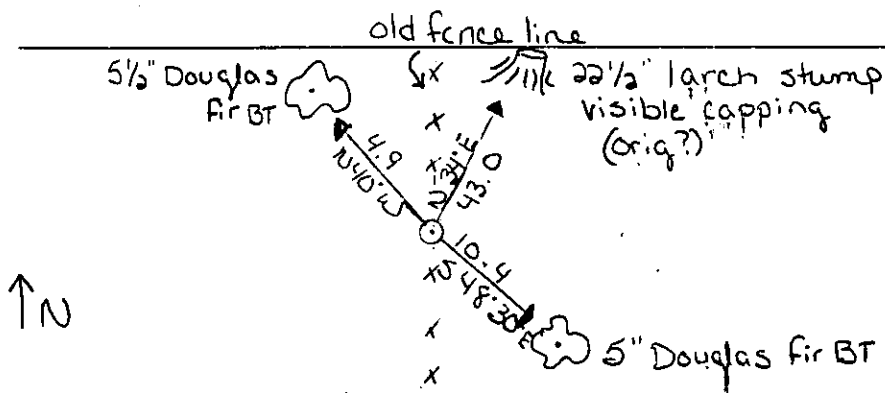 old fence line
5½" Douglas
fir BT
22½" larch stump
visible capping
(orig?)
4.9
N40°W
N34°E
43.0
10.4
S48°30'E
↑N
5" Douglas fir BT